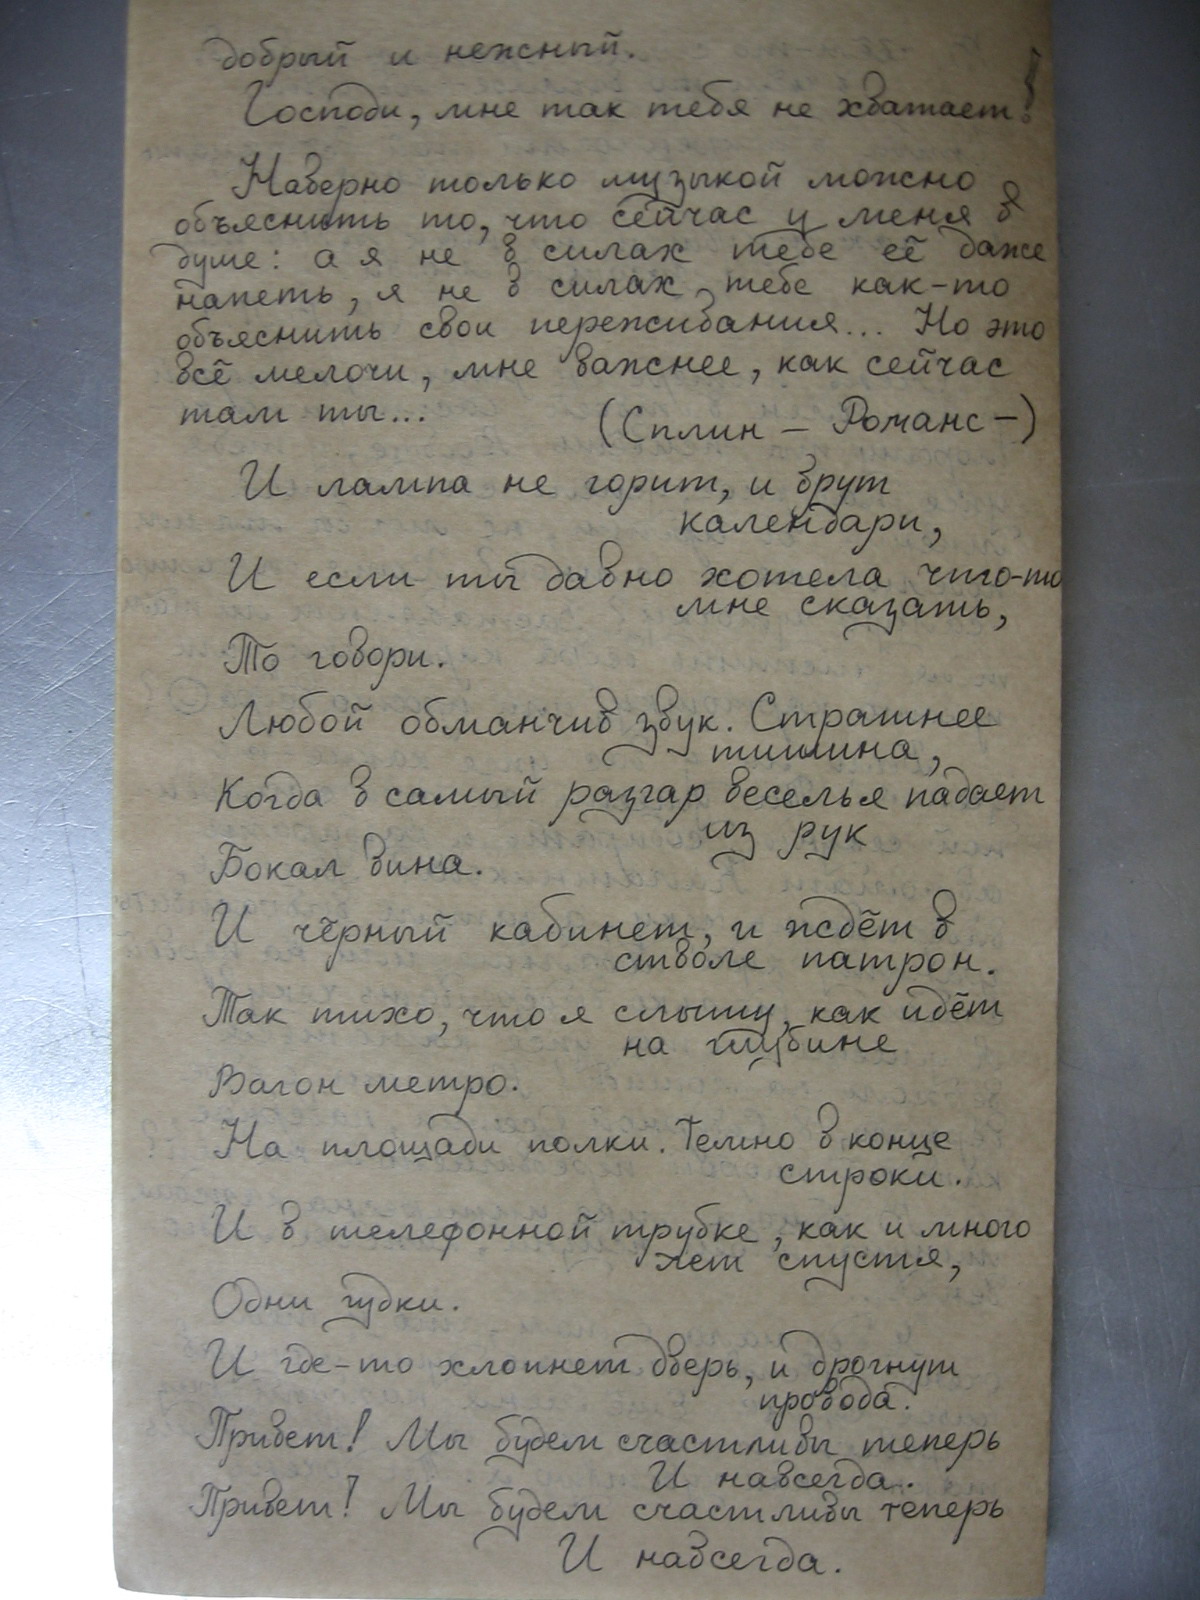 добрый и нежный.
Господи, мне так тебя не хватает!
Наверно только музыкой можно
объяснить то, что сейчас у меня в
душе: а я не в силах тебе её даже
напеть, я не в силах тебе как-то
объяснить свои переживания... Но это
всё мелочи, мне важнее, как сейчас
там ты...
(Сплин – Романс –)
И лампа не горит, и врут
календари,
И если ты давно хотела что-то
мне сказать,
То говори.
Любой обманчив звук. Страшнее
тишина,
Когда в самый разгар веселья падает
из рук
Бокал вина.
И чёрный кабинет, и ждёт в
стволе патрон.
Так тихо, что я слышу, как идёт
на глубине
Вагон метро.
На площади полки. Темно в конце
строки.
И в телефонной трубке, как и много
лет спустя,
Одни гудки.
И где-то хлопнет дверь, и дрогнут
провода.
Привет! Мы будем счастливы теперь
И навсегда..
Привет! Мы будем счастливы теперь
И навсегда.